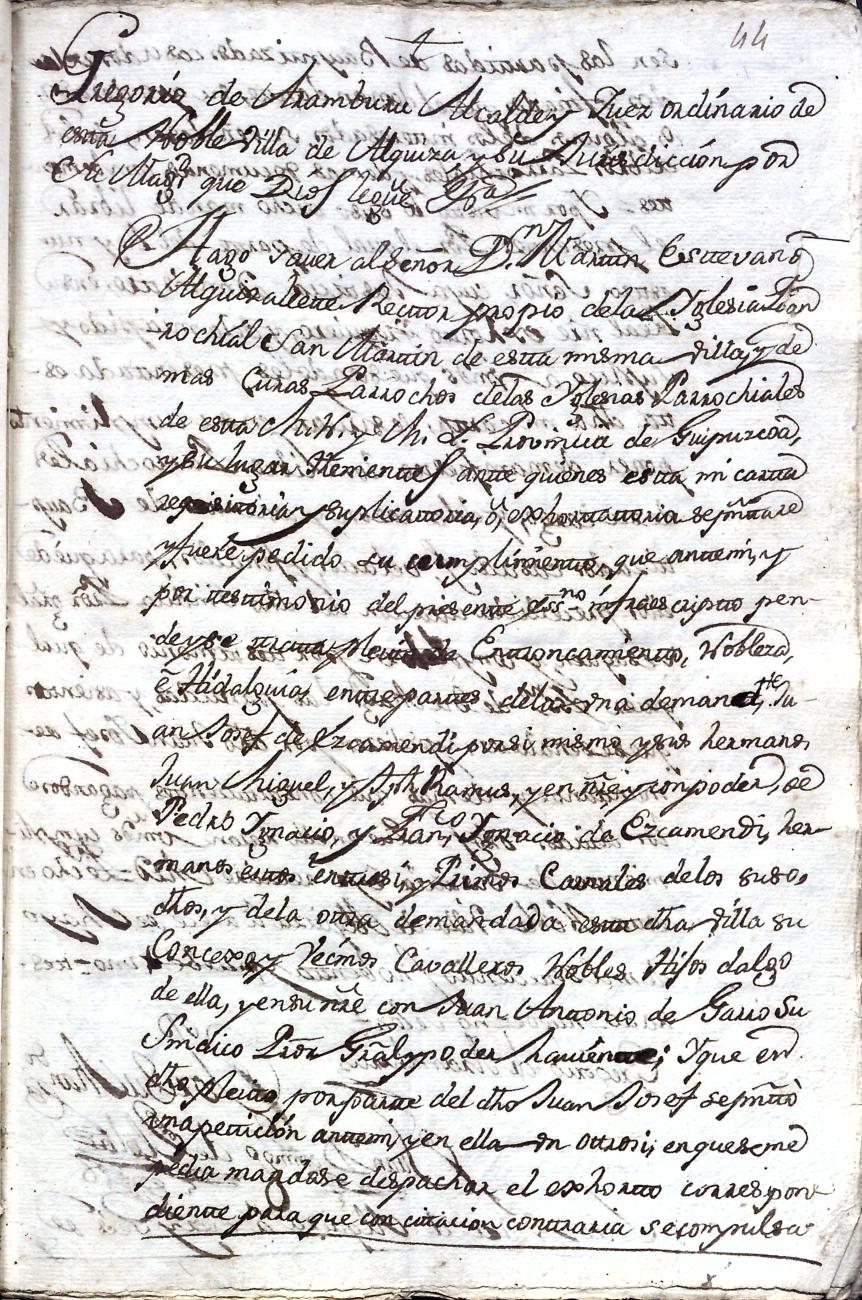 44
Gregorio de Aramburu Alcalde y Juez ordinario de
esta Noble Villa de Alquiza y su Jurisdiccion por
S. Mag.d que Dios gũe
Hago saver al Señor D.n Martin Estevan
Rector propio de la Yglesia Par
rochial San Martin de esta misma Villa, y de
mas Curas Parrochos delas Yglesias Parrochiales
de esta M. N. y M. L. Provincia de Guipuzcoa,
y su lugar thenientes ante quienes esta mi carta
requisitoria, suplicatoria, ó, exhortattoria se p̃ntare
y fuere pedido su cumplimiento, que antemi, y
por testimonio del presente ess.no infraescripto pen-
de y se tratta pleito de Entroncamiento, Nobleza,
é Hidalguia, entre partes dela una demand.te Ju-
an Josef de Ezcamendi por si mismo y sus hermanos
Juan Miguel, y Jph Ramus, y en ñre y con poder de
Pedro Ygnacio, y Fran.co Ygnacio de Ezcamendi, her-
manos estos entresi, y Primos Carnales delos suso,
dhos, y dela otra demandada esta dha Villa su
Concexo y Vecinos Cavalleros Nobles Hijos dalgo
de ella, y en su ñre con Juan Antonio de Garro su
Sindico Pror Gral y poder haviente; Y que en
dho Pleito por parte del dho Juan Josef se p̃nttò
una peticion antemi, y en ella un ottrosi, en que se me
pedia mandase despachar el exhorto correspon-
diente para que con citacion contraria se compulsa